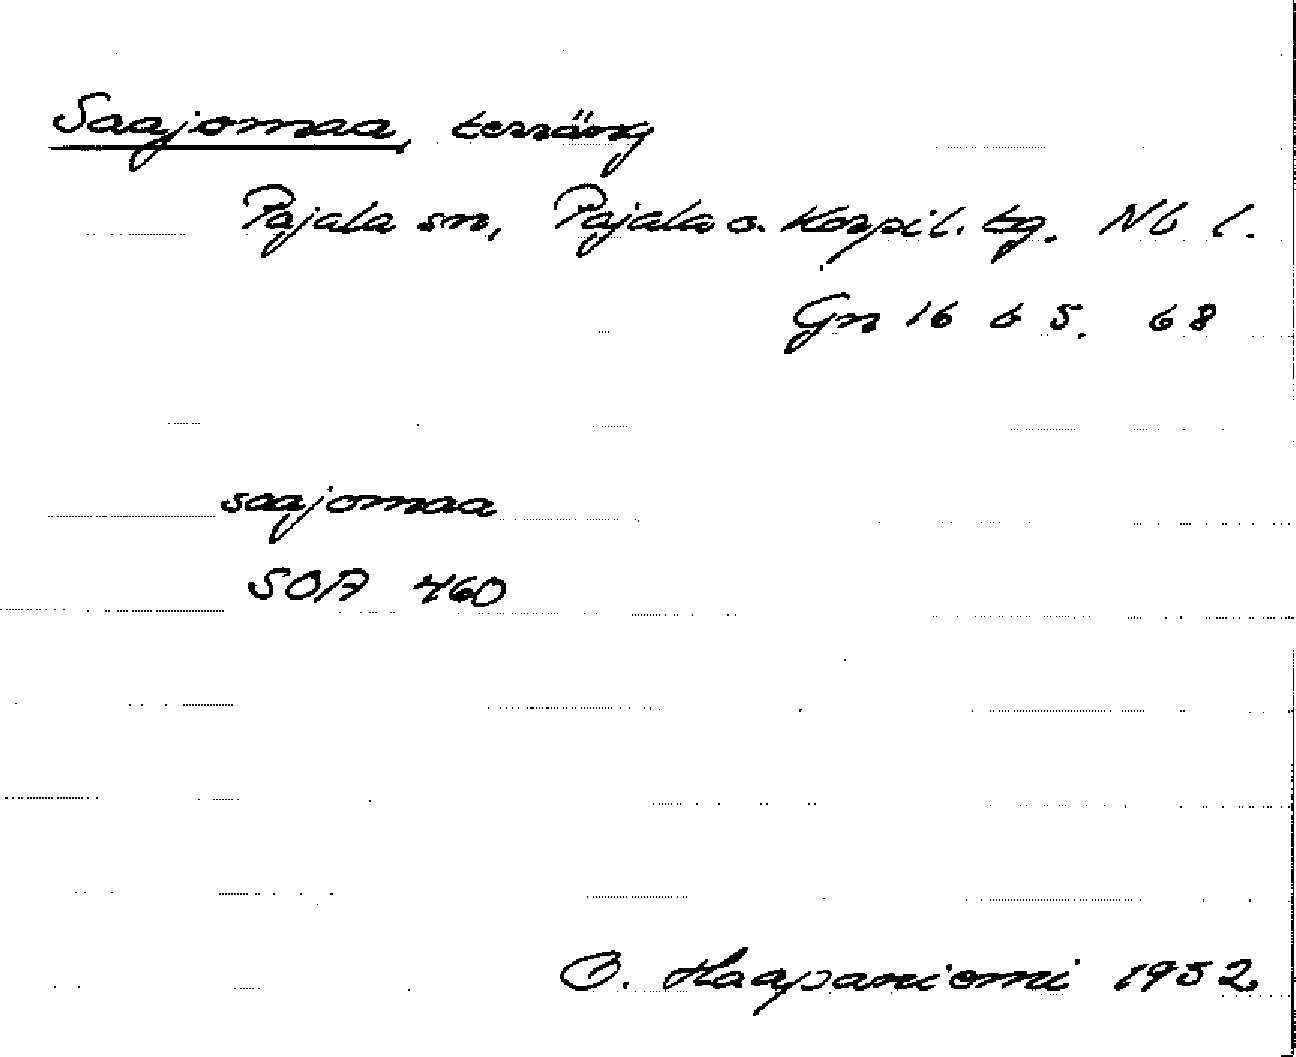 Saajomaa, terräng
Pajala sn, Pajala o. Korpil. tg. Nb l.
Gn 16 b 5. 68
saajomaa
SOA 460
O. Haapaniemi 1952